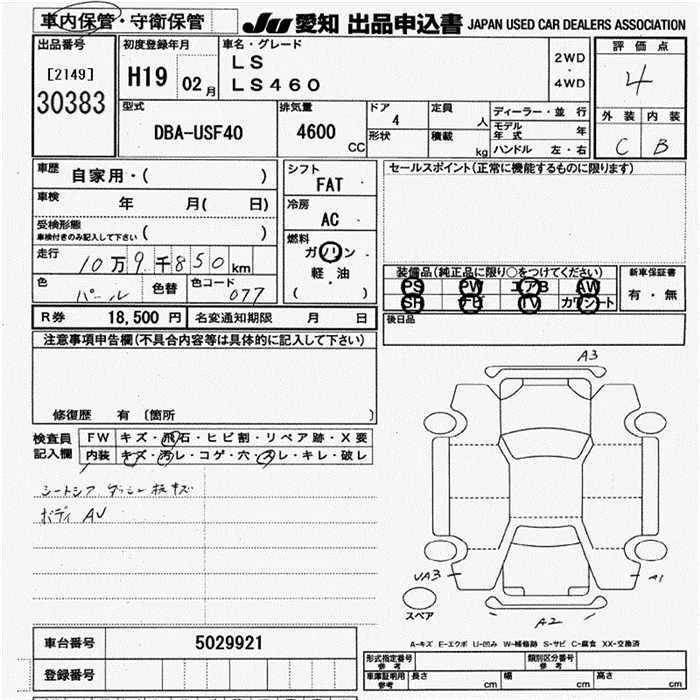 車内保管・守衛保管
JU 愛知 出品申込書 JAPAN USED CAR DEALERS ASSOCIATION
出品番号
[2149]
30383
初度登録年月
H19 02 月
車名・グレード
LS
LS460
2WD
・
4WD
評価点
4
外装 内装
C B
型式
DBA-USF40
排気量
4600
CC
ドア
4
形状
定員
人
積載
kg
ディーラー・並行
モデル年式 年
ハンドル 左・右
車歴 自家用・( )
車検 年 月( 日)
受検形態
車検付きのみ記入して下さい ( )
走行 10万9千850km
色 パール 色替 色コード 077
シフト
FAT
冷房
AC
燃料
ガソリン
軽・油
( )
セールスポイント(正常に機能するものに限ります)
装備品(純正品に限り○をつけてください)
PS PW エアB AW
SR ナビ TV カワシート
新車保証書
有・無
後日品
R券 18,500 円 名変通知期限 月 日
注意事項申告欄(不具合内容等は具体的に記入して下さい)
修復歴 有 〔箇所 〕
検査員
記入欄
FW キズ・飛石・ヒビ割・リペア跡・X要
内装 キズ・汚レ・コゲ・穴・スレ・キレ・破レ
ボディ AU
A3
UA3
A1
A2
スペア
A-キズ E-エクボ U-凹み W-補修跡 S-サビ C-腐食 XX-交換済
車台番号 5029921
登録番号
形式指定番号
参考
類別区分番号
参考
車庫証明用
参考
長さ cm 幅 cm 高さ cm